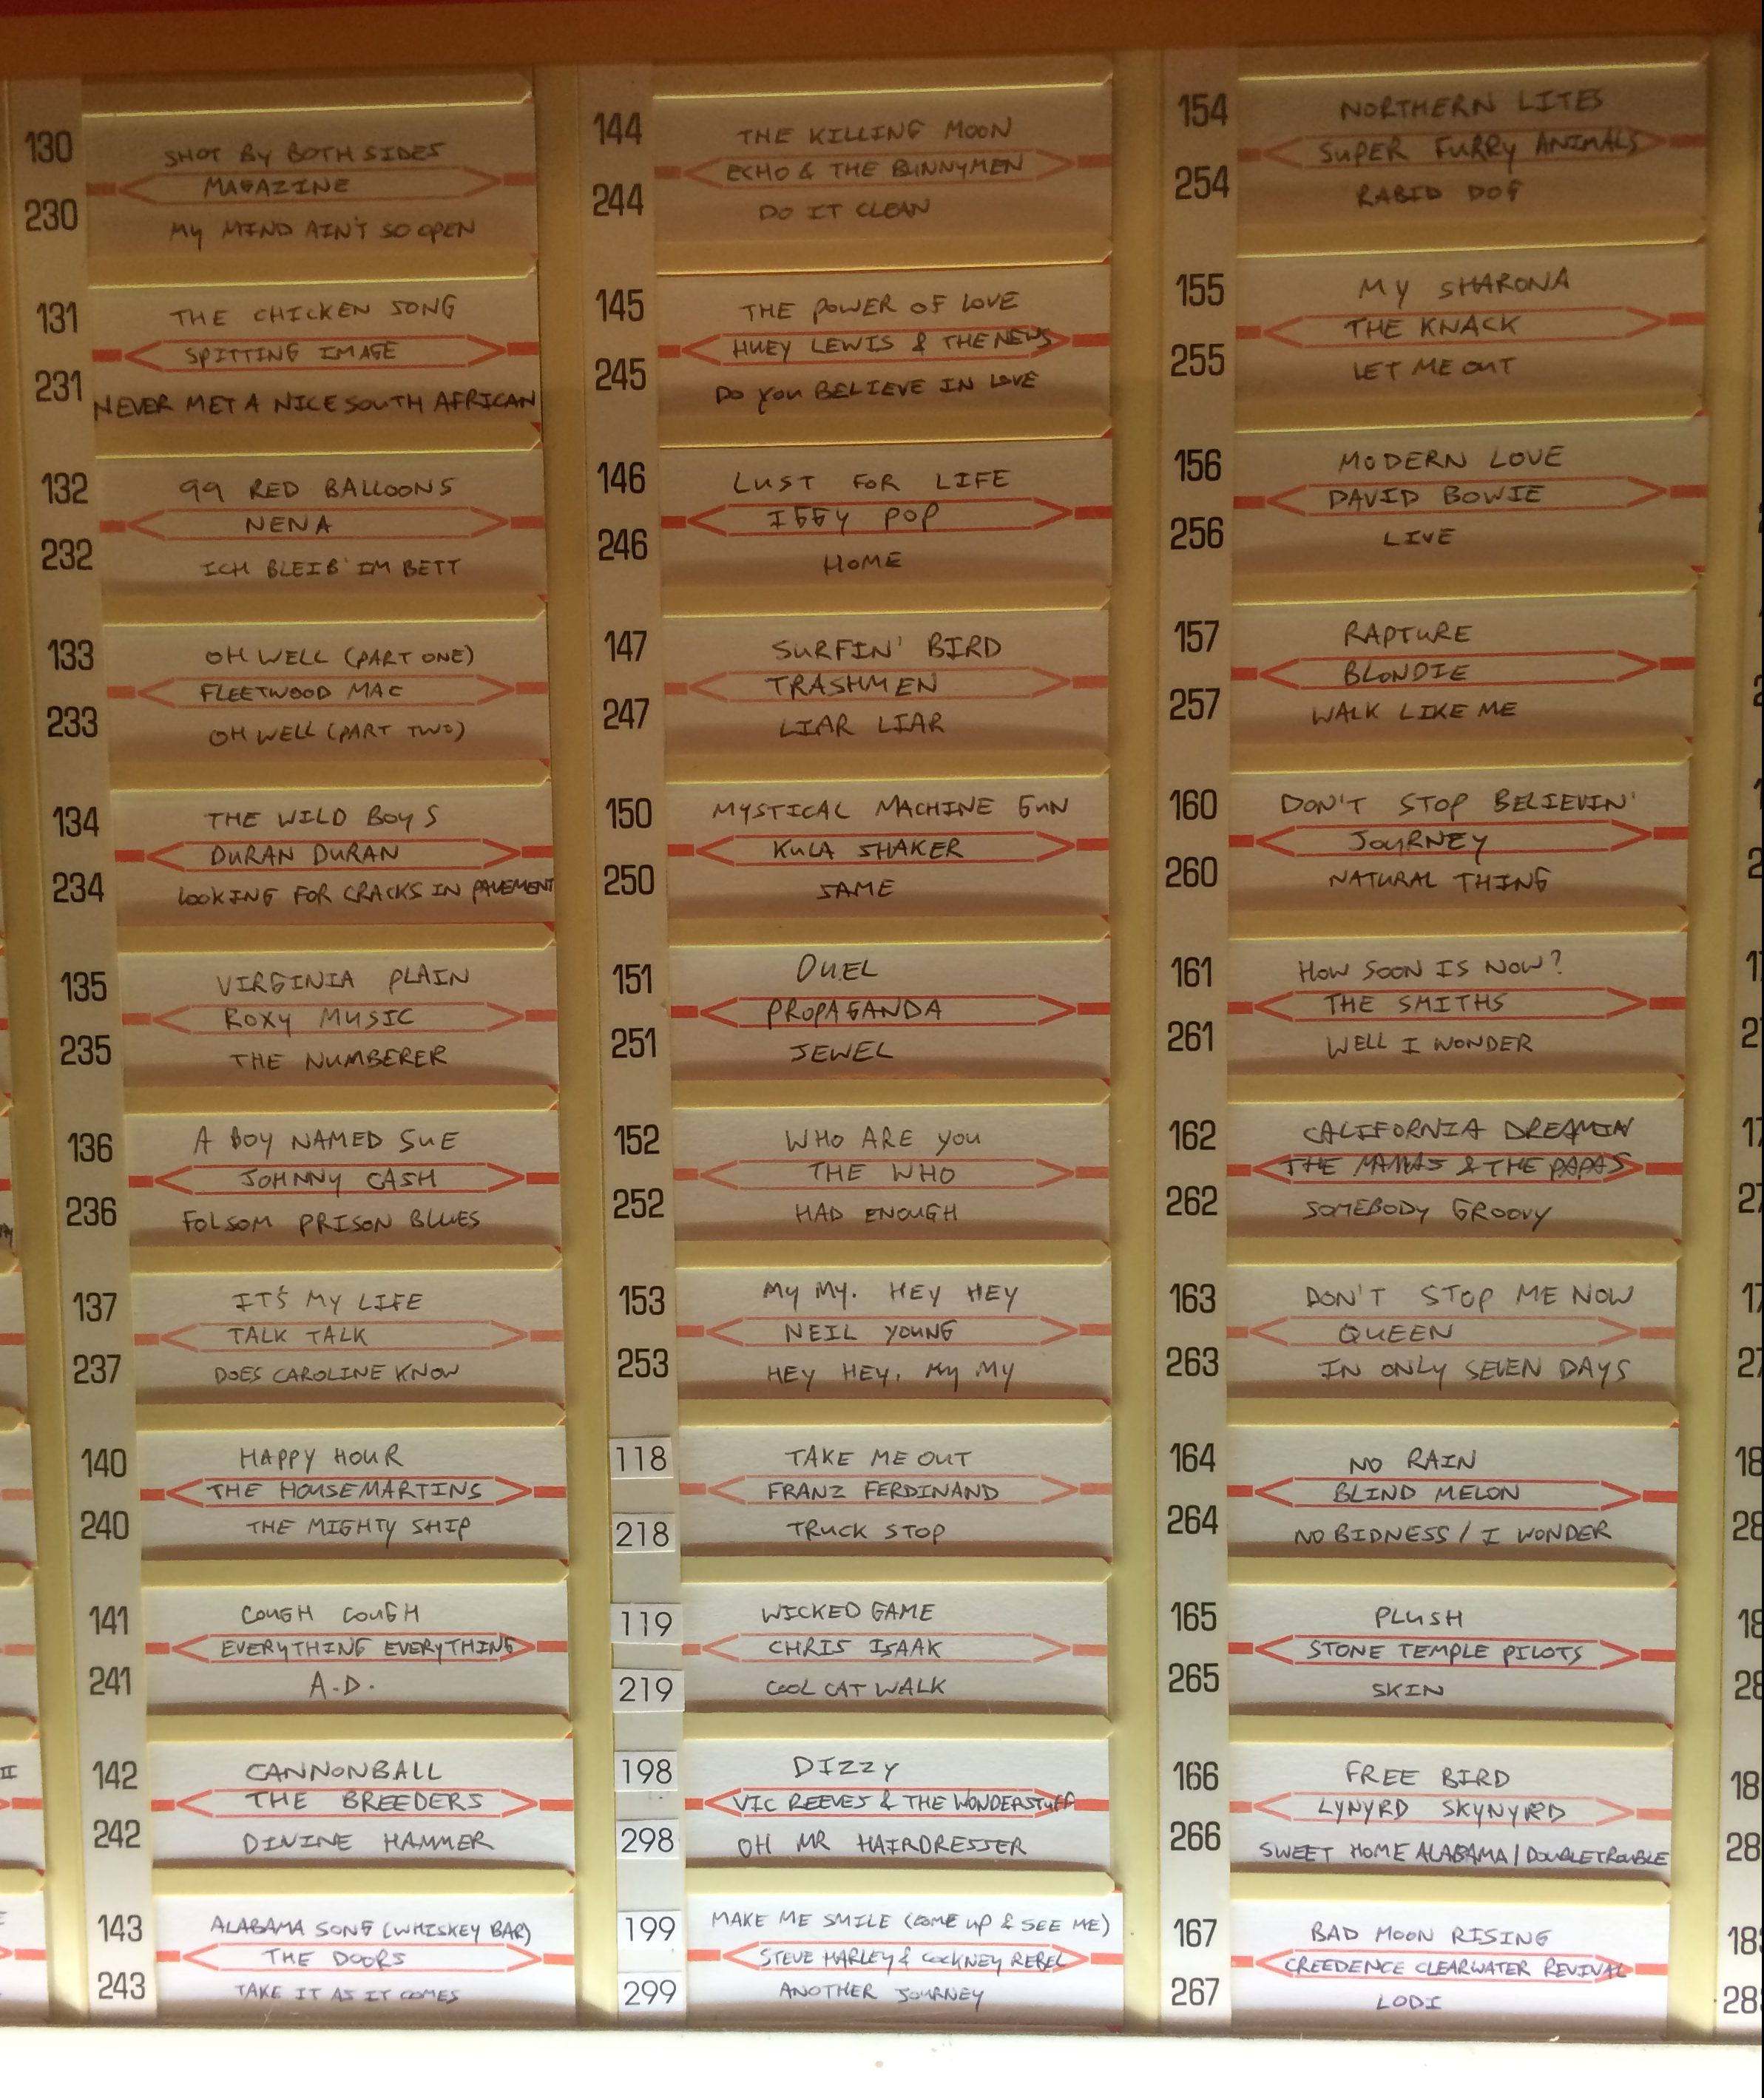 130
SHOT BY BOTH SIDES
MAGAZINE
230
MY MIND AIN'T SO OPEN
131
THE CHICKEN SONG
SPITTING IMAGE
231
NEVER MET A NICE SOUTH AFRICAN
132
99 RED BALLOONS
NENA
232
ICH BLEIB' IM BETT
133
OH WELL (PART ONE)
FLEETWOOD MAC
233
OH WELL (PART TWO)
134
THE WILD BOYS
DURAN DURAN
234
LOOKING FOR CRACKS IN PAVEMENT
135
VIRGINIA PLAIN
ROXY MUSIC
235
THE NUMBERER
136
A BOY NAMED SUE
JOHNNY CASH
236
FOLSOM PRISON BLUES
137
IT'S MY LIFE
TALK TALK
237
DOES CAROLINE KNOW
140
HAPPY HOUR
THE HOUSEMARTINS
240
THE MIGHTY SHIP
141
COUGH COUGH
EVERYTHING EVERYTHING
241
A.D.
142
CANNONBALL
THE BREEDERS
242
DIVINE HAMMER
143
ALABAMA SONG (WHISKEY BAR)
THE DOORS
243
TAKE IT AS IT COMES
144
THE KILLING MOON
ECHO & THE BUNNYMEN
244
DO IT CLEAN
145
THE POWER OF LOVE
HUEY LEWIS & THE NEWS
245
DO YOU BELIEVE IN LOVE
146
LUST FOR LIFE
IGGY POP
246
HOME
147
SURFIN' BIRD
TRASHMEN
247
LIAR LIAR
150
MYSTICAL MACHINE GUN
KULA SHAKER
250
SAME
151
DUEL
PROPAGANDA
251
JEWEL
152
WHO ARE YOU
THE WHO
252
HAD ENOUGH
153
MY MY. HEY HEY
NEIL YOUNG
253
HEY HEY, MY MY
118
TAKE ME OUT
FRANZ FERDINAND
218
TRUCK STOP
119
WICKED GAME
CHRIS ISAAK
219
COOL CAT WALK
198
DIZZY
VIC REEVES & THE WONDERSTUFF
298
OH MR HAIRDRESSER
199
MAKE ME SMILE (COME UP & SEE ME)
STEVE HARLEY & COCKNEY REBEL
299
ANOTHER JOURNEY
154
NORTHERN LITES
SUPER FURRY ANIMALS
254
RABID DOG
155
MY SHARONA
THE KNACK
255
LET ME OUT
156
MODERN LOVE
DAVID BOWIE
256
LIVE
157
RAPTURE
BLONDIE
257
WALK LIKE ME
160
DON'T STOP BELIEVIN'
JOURNEY
260
NATURAL THING
161
HOW SOON IS NOW?
THE SMITHS
261
WELL I WONDER
162
CALIFORNIA DREAMIN
THE MAMAS & THE PAPAS
262
SOMEBODY GROOVY
163
DON'T STOP ME NOW
QUEEN
263
IN ONLY SEVEN DAYS
164
NO RAIN
BLIND MELON
264
NO BIDNESS / I WONDER
165
PLUSH
STONE TEMPLE PILOTS
265
SKIN
166
FREE BIRD
LYNYRD SKYNYRD
266
SWEET HOME ALABAMA / DOUBLE TROUBLE
167
BAD MOON RISING
CREEDENCE CLEARWATER REVIVAL
267
LODI